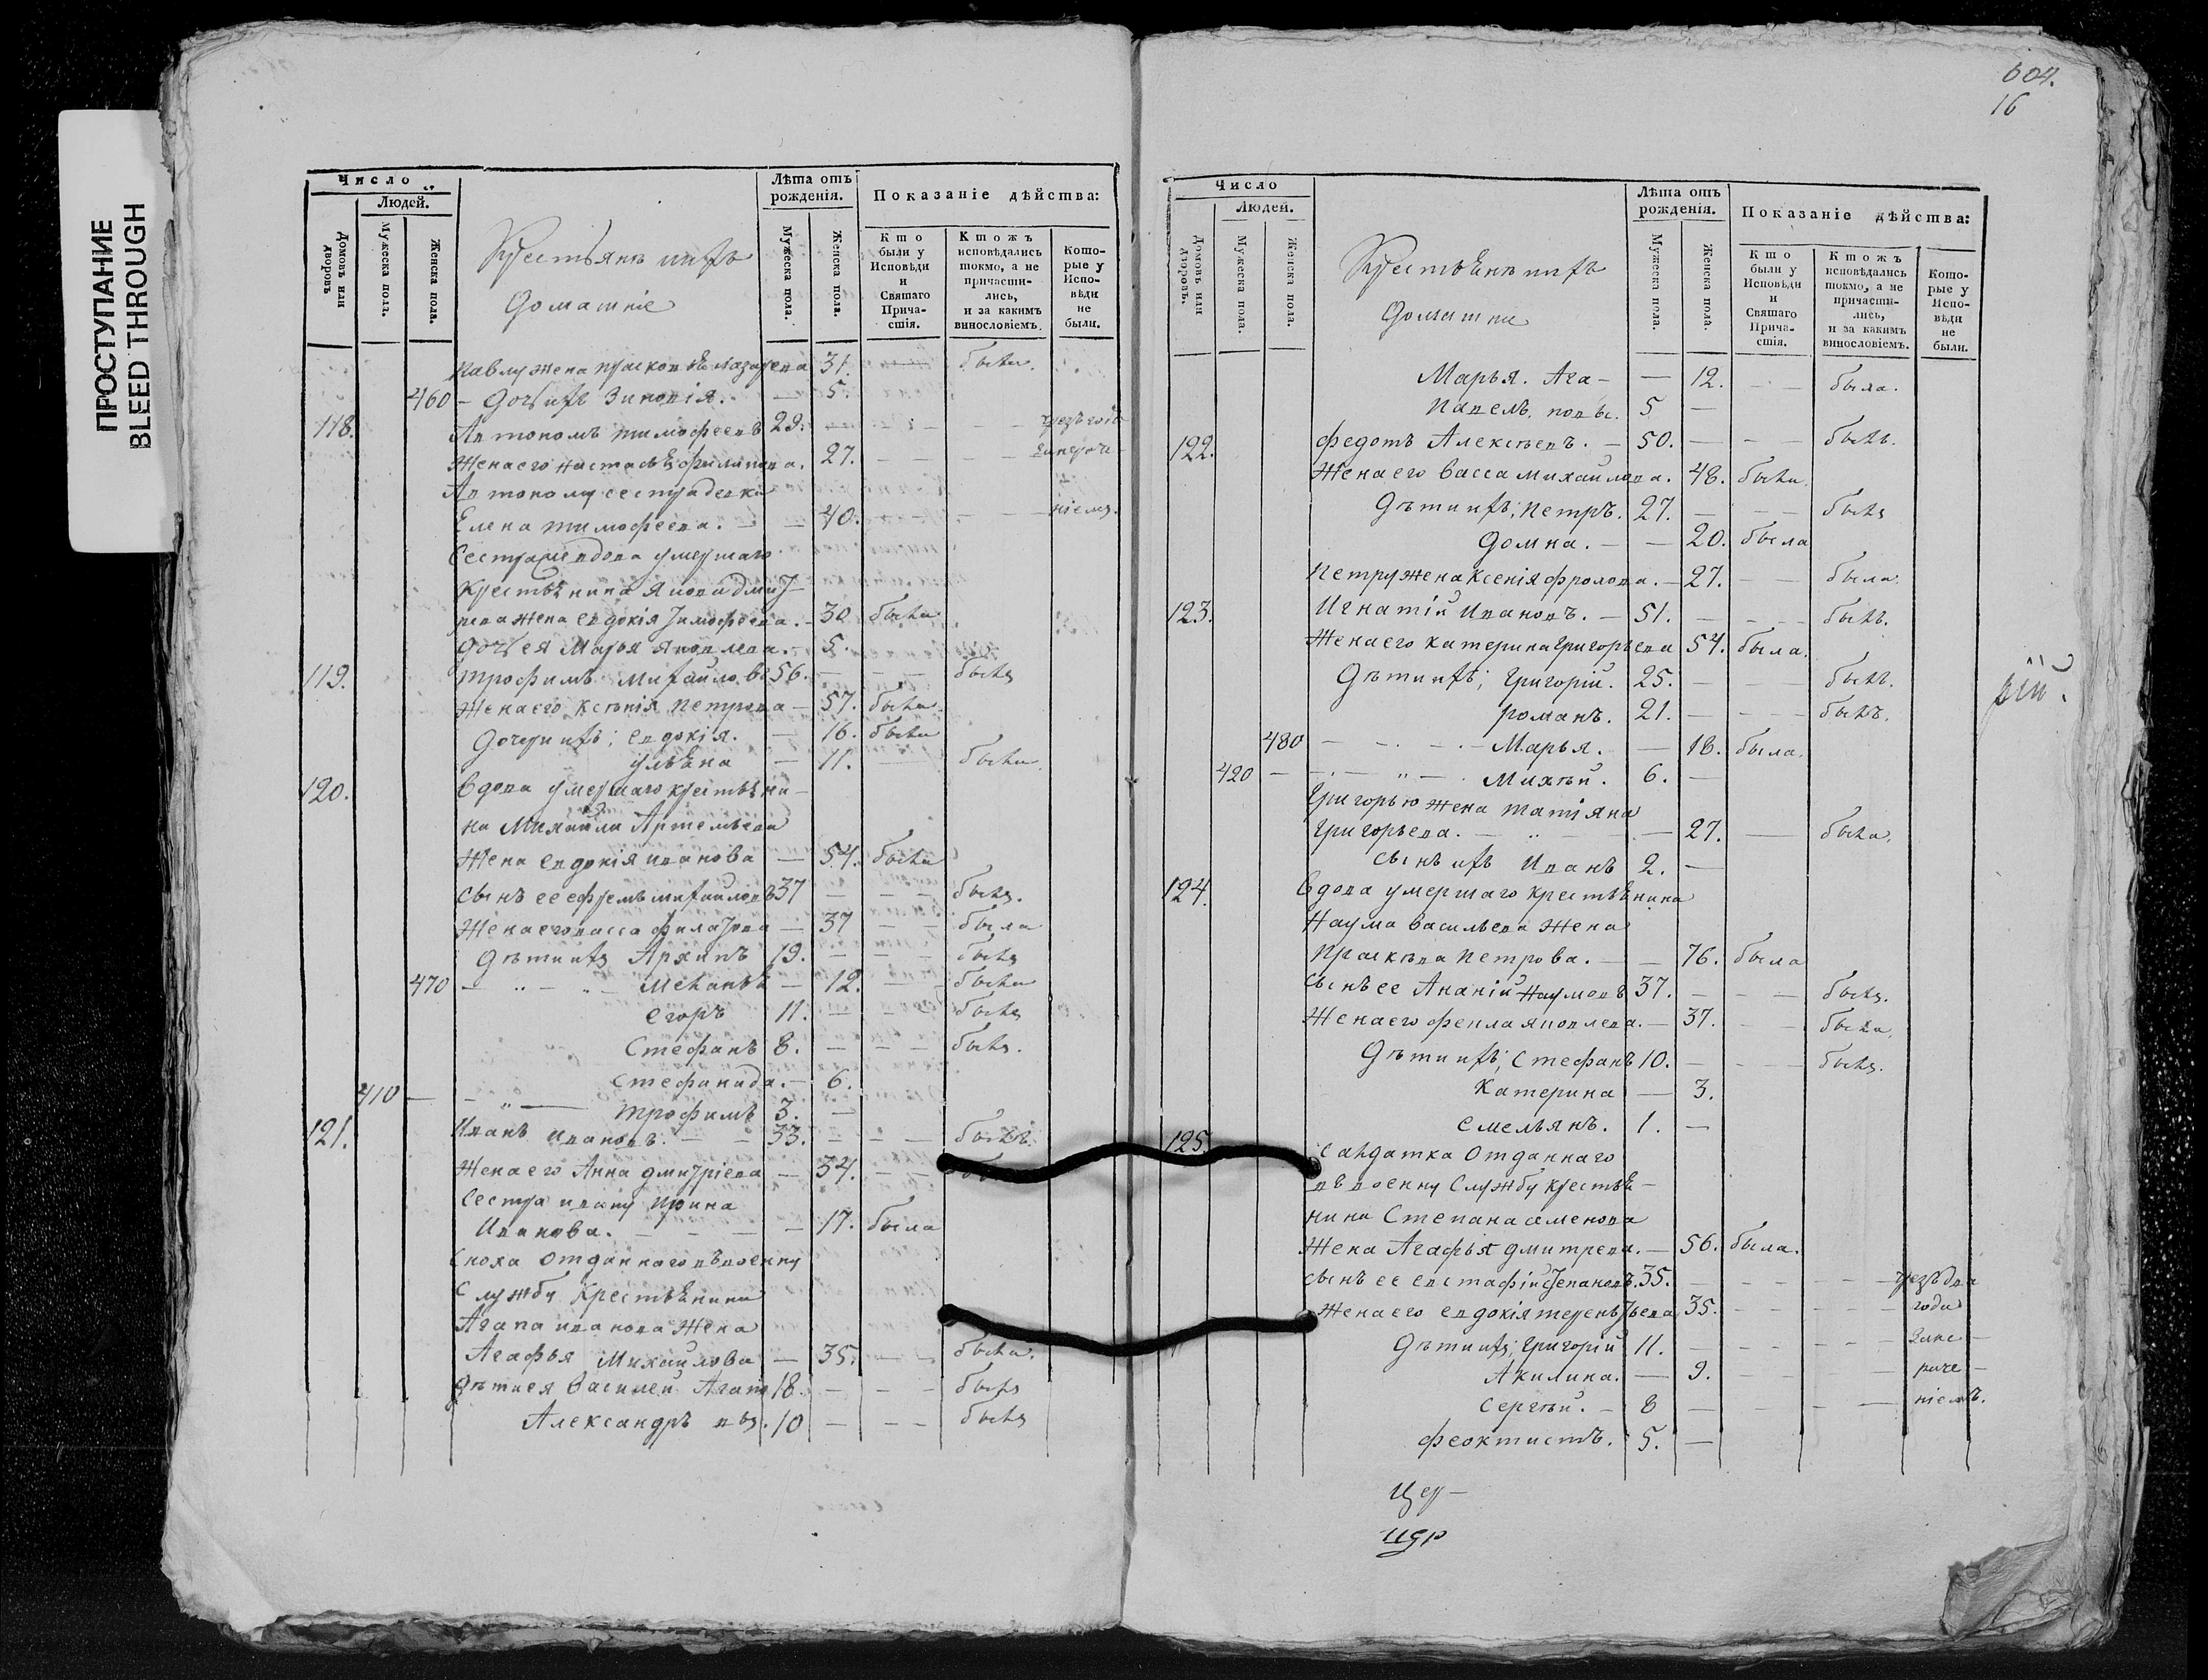 ПРОСТУПАНИЕ
BLEED THROUGH
Число
Людей.
Домовъ или дворовъ
Мужеска пола.
Женска пола.
Крестьяне и ихъ
домашніе
Лѣта отъ рожденія.
Мужеска пола.
Женска пола.
Показаніе дѣйства:
Кто были у Исповѣди и Святаго Причастія.
Ктожъ исповѣдались токмо, а не причастились, и за какимъ винословіемъ.
Которые у Исповѣди не были.
Павлу жена Прасковья Лазарева 31. — была.
460 — дочь ихъ Зиновія. — 5.
118. Автономъ Тимофеевъ 29. — — —
Жена его Настасья Филипова. 27. — — —
Автоному сестра девка
Елена Тимофеева. — — 40. — — — ніемъ.
Крестьянина Якова Дмит-
рева жена Евдокія Тимофеева. — 30 была
дочь ея Марья Яковлева. — 5.
119. Трофимъ Михайловъ 56. — — — былъ
Жена его Ксенія Петрова — 57. была
дочери ихъ; Евдокія. — 16. была
Ульяна — 11. — была.
120. Вдова умершаго крестьяни-
на Михайла Артемьева
жена Евдокія Иванова — 54. была
сынъ ее Ефремъ Михайловъ 37 — — — былъ.
Жена его Васса Филатова — 37 — — была
дѣти ихъ Архипъ 19. — — — былъ
470 — „ — „ — Меланья — 12. — — была
Егоръ 11. — — — былъ
Стефанъ 8. — — — былъ.
Стефанида. — 6.
410 — — „ — Трофимъ 3. —
121. Иванъ Ивановъ. — — 33. — — — былъ.
Жена его Анна Дмитріева — 34. — —
Сестра Ивану Ирина
Иванова. — — — — 17. была
Сноха отданнаго въ военну
службу крестьянина
Агапа Иванова жена
Агафья Михайлова — 35. — — была.
дѣти ея Василей Агапо 18. — — — былъ
Александръ въ. 10 — — — былъ
604.
16
Число
Людей.
Домовъ или дворовъ.
Мужеска пола.
Женска пола.
Крестьяне и ихъ
домашніе
Лѣта отъ рожденія.
Мужеска пола.
Женска пола.
Показаніе дѣйства:
Кто были у Исповѣди и Святаго Причастія.
Ктожъ исповѣдались токмо, а не причастились, и за какимъ винословіемъ.
Которые у Исповѣди не были.
Марья. Ага — — 12. — — была.
Павелъ. 5 —
122. Федотъ Алексѣевъ. — 50. — — — былъ.
Жена его Васса Михайлова. 48. была.
Дѣти ихъ; Петръ. 27. — — — былъ
Домна. — — 20. была
Петру жена Ксенія Фролова. — 27. — — была.
123. Игнатій Ивановъ. — 51. — — — былъ.
Жена его Катерина Григорьева 54. была.
Дѣти ихъ; Григорій. 25. — — — былъ.
Романъ. 21. — — — былъ.
480 — — — Марья. — 18. была.
420 — — „ — Михѣй. 6. —
Григорью жена Татіяна
Григорьева. — „ — — 27. — была.
сынъ ихъ Иванъ 2. —
124. Вдова умершаго крестьянина
Наума Васильева жена
Прасковья Петрова. — — 76. была
сынъ ее Ананій Наумовъ 37. — — — былъ.
Жена его Фекла Яковлева. — 37. — — была.
Дѣти ихъ; Стефанъ 10. — — — былъ.
Катерина — 3.
Емельянъ. 1. —
125. Салдатка отданнаго
въ военну службу крестья-
нина Степана Семенова
жена Агафья Дмитрева. — 56. была.
сынъ ее Евстафій Степановъ. 35. — — — —
Жена его Евдокія Терентьева 35. — — — года
Дѣти ихъ; Григорій 11. — — — —
Акилина. — 9. — — — раче —
Сергѣй. — 8 — — — — ніемъ.
Феоктистъ. 5. —
рій.
Цер —
цер